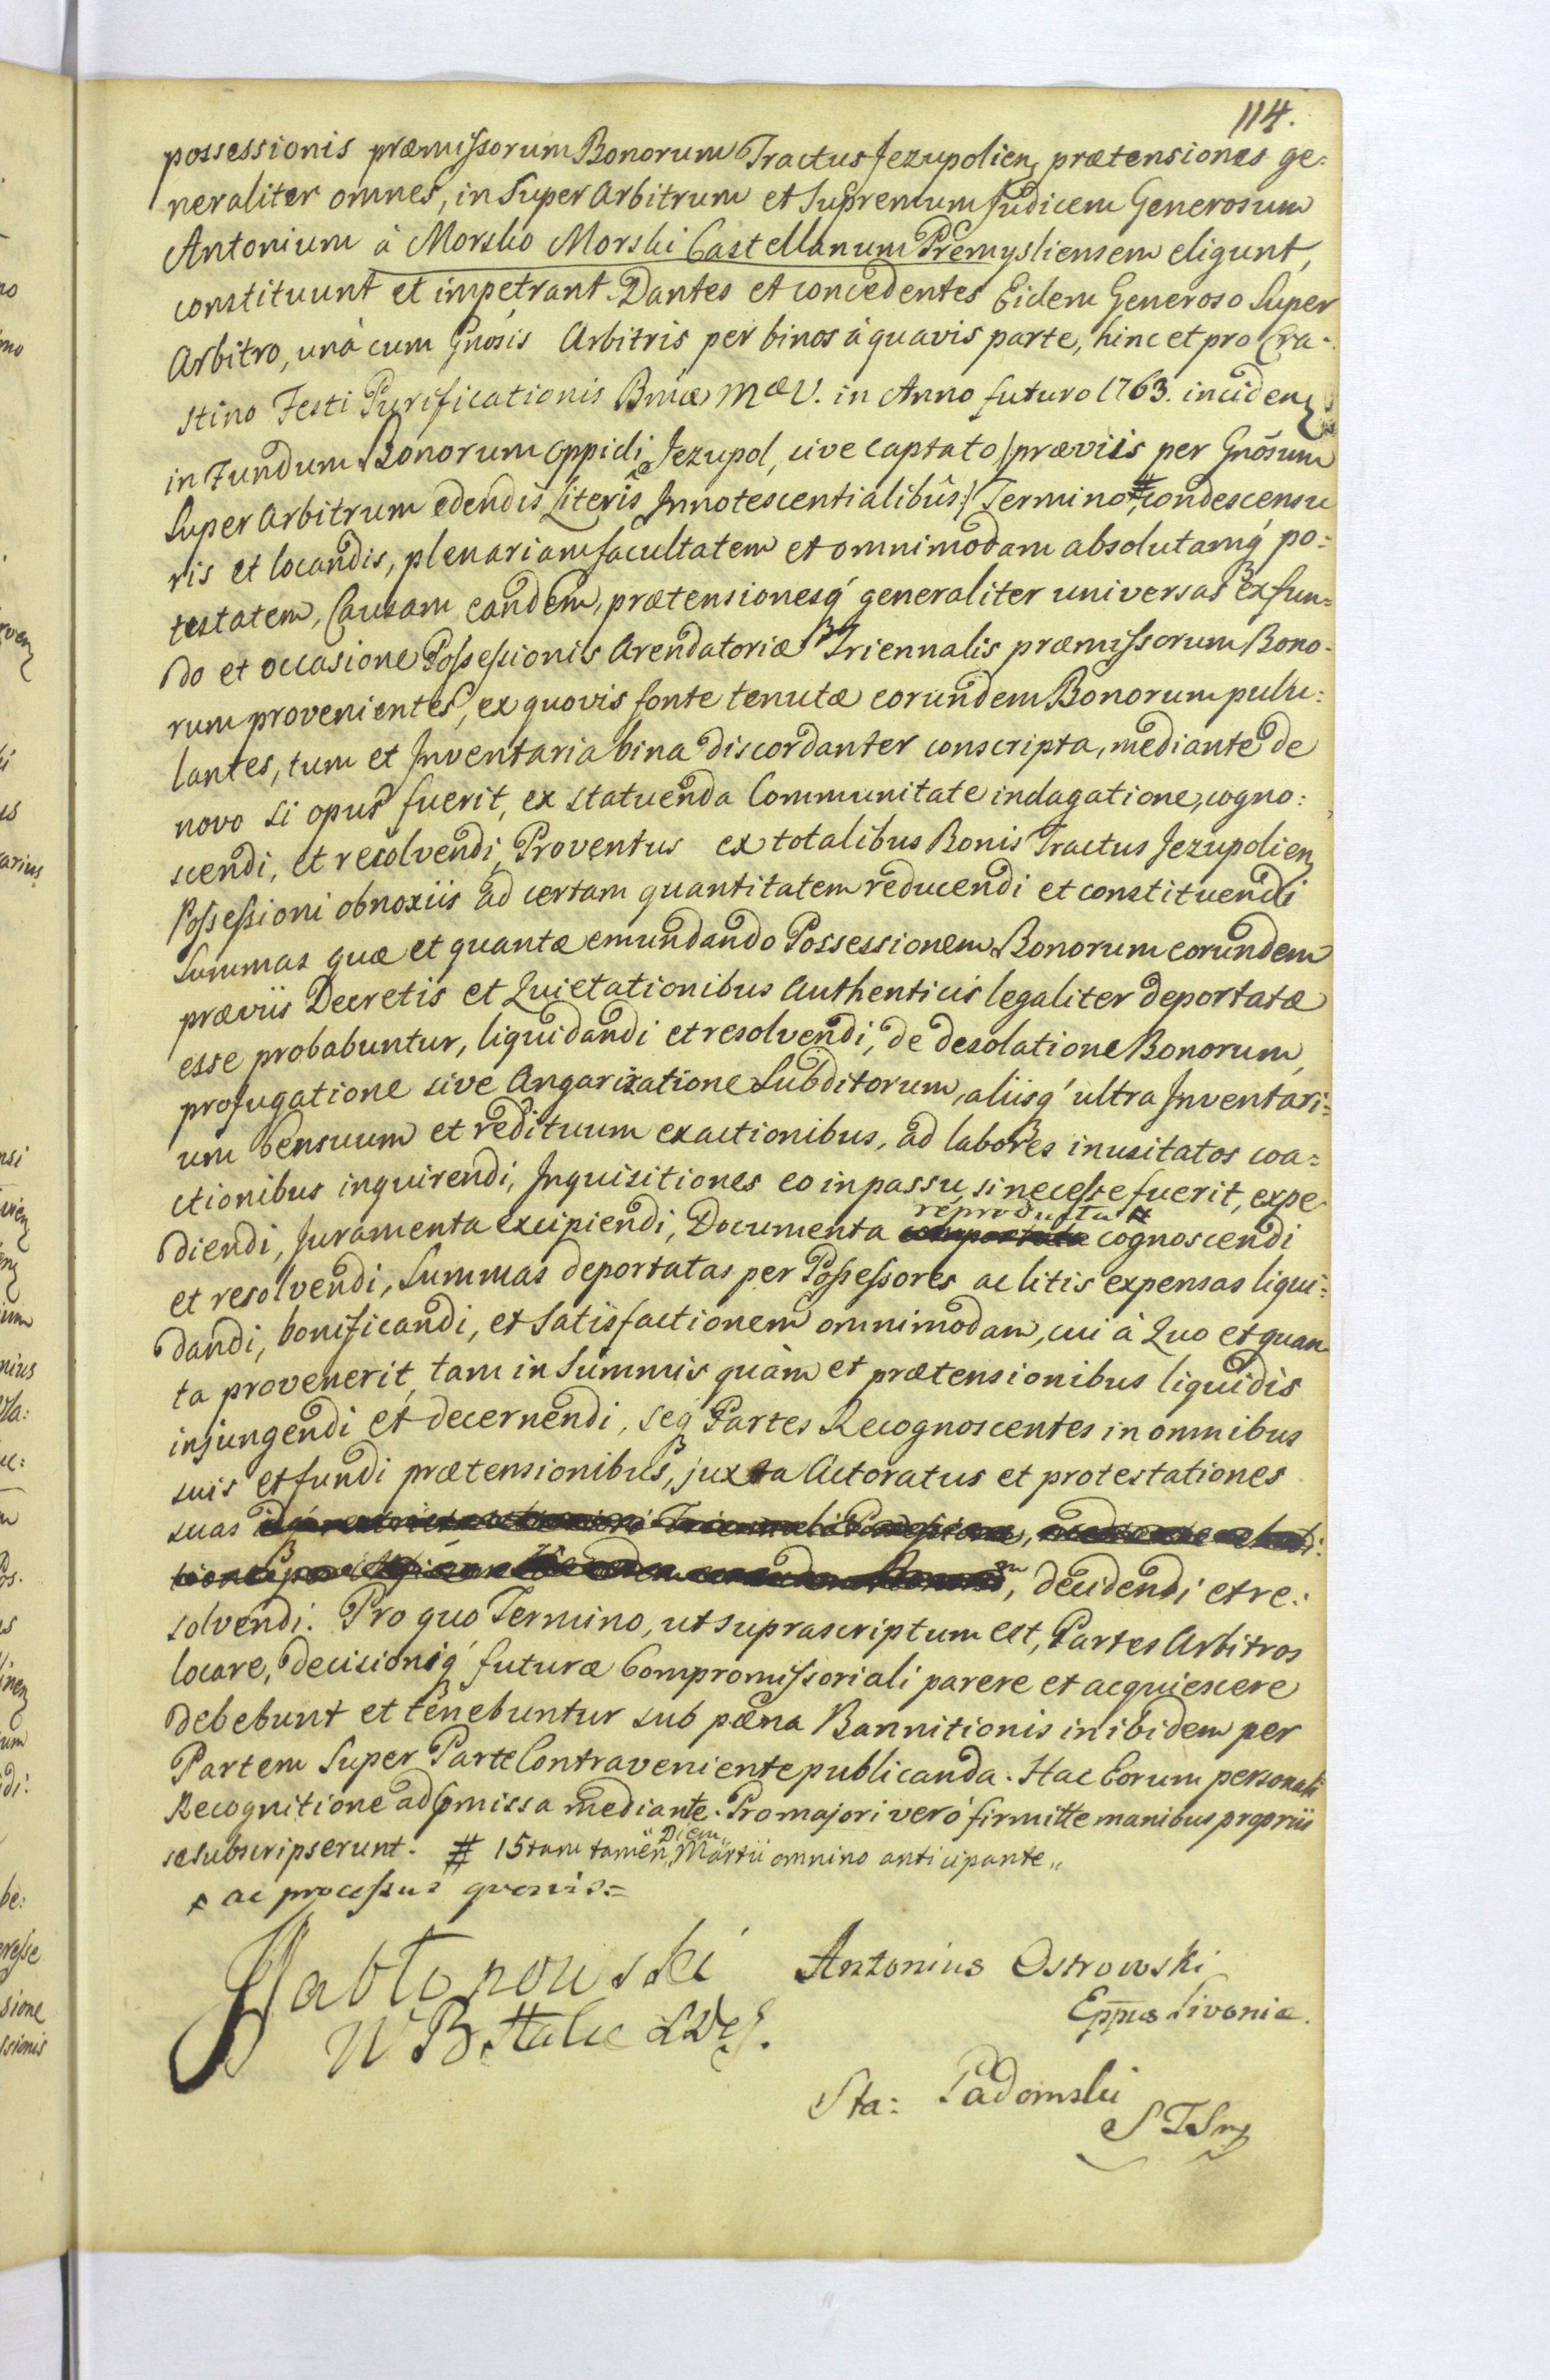 114.
possessionis præmissorum Bonorum Tractus Jezupolien, prætensiones ge:
neraliter omnes, in Super Arbitrum et Supremum Judicem Generosum
Antonium à Morsko Morski Castellanum Premysliensem eligunt,
constituunt et impetrant. Dantes et concedentes Eidem Generoso Super
Arbitro, unà cum Gnosis Arbitris per binos à quavis parte, hinc et pro Cra:
stino Festi Purificationis Bmæ Mæ V. in Anno futuro 1763. inciden
in Fundum Bonorum Oppidi Jezupol, sive captato /: præviis per Gnosum
Super Arbitrum edendis Literis Innotescentialibus :/ Termino, # condescensu
ris et locandis, plenariam facultatem et omnimodam absolutamq́ po:
testatem, Causam eandem, prætensionesq́ generaliter universas ex fun:
do et occasione Possessionis Arendatoriæ Triennalis præmissorum Bono:
rum provenientes, ex quovis fonte tenutæ eorundem Bonorum pulu:
lantes, tum et Inventaria bina discordanter conscripta, mediante de
novo si opus fuerit, ex statuenda Communitate indagatione, cogno:
scendi, et resolvendi, Proventus ex totalibus Bonis Tractus Jezupolien
Possessioni obnoxiis ad certam quantitatem reducendi et constituendi
Summas quæ et quantæ emundando Possessionem Bonorum eorundem
præviis Decretis et Quietationibus Authenticis legaliter deportatæ
esse probabuntur, liquidandi et resolvendi, de desolatione Bonorum,
profugatione sive Angarizatione Subditorum, aliisq́ ultra Inventari:
um Censuum et redituum exactionibus, ad labores inusitatos coa:
ctionibus inquirendi, Inquisitiones eo in passu, si necesse fuerit, expe
diendi, Juramenta excipiendi, Documenta reproducta × cognoscendi
et resolvendi, Summas deportatas per Possessores ac litis expensas liqui:
dandi, bonificandi, et Satisfactionem omnimodam, cui à Quo et quan
ta provenerit, tam in Summis quàm et prætensionibus liquidis
injungendi et decernendi, seq́ Partes Recognoscentes in omnibus
suis et fundi prætensionibus, juxta Actoratus et protestationes
suas
decidendi et re:
solvendi. Pro quo Termino, ut suprascriptum est, Partes Arbitros
locare, decisioniq́ futuræ Compromissoriali parere et acquiescere
debebunt et tenebuntur sub pæna Bannitionis inibidem per
Partem Super Parte Contraveniente publicanda. Hac Eorum personali
Recognitione ad pmissa mediante. Pro majori verò firmitte manibus propriis
se subscripserunt. # 15tam tamen Diem Martii omnino anticipante
× ac processus quonis=
Jabłonowski
W B Stalic LWq.
Antonius Ostrowski
Eppus Livoniæ.
Sta: Padomski
S T Sn